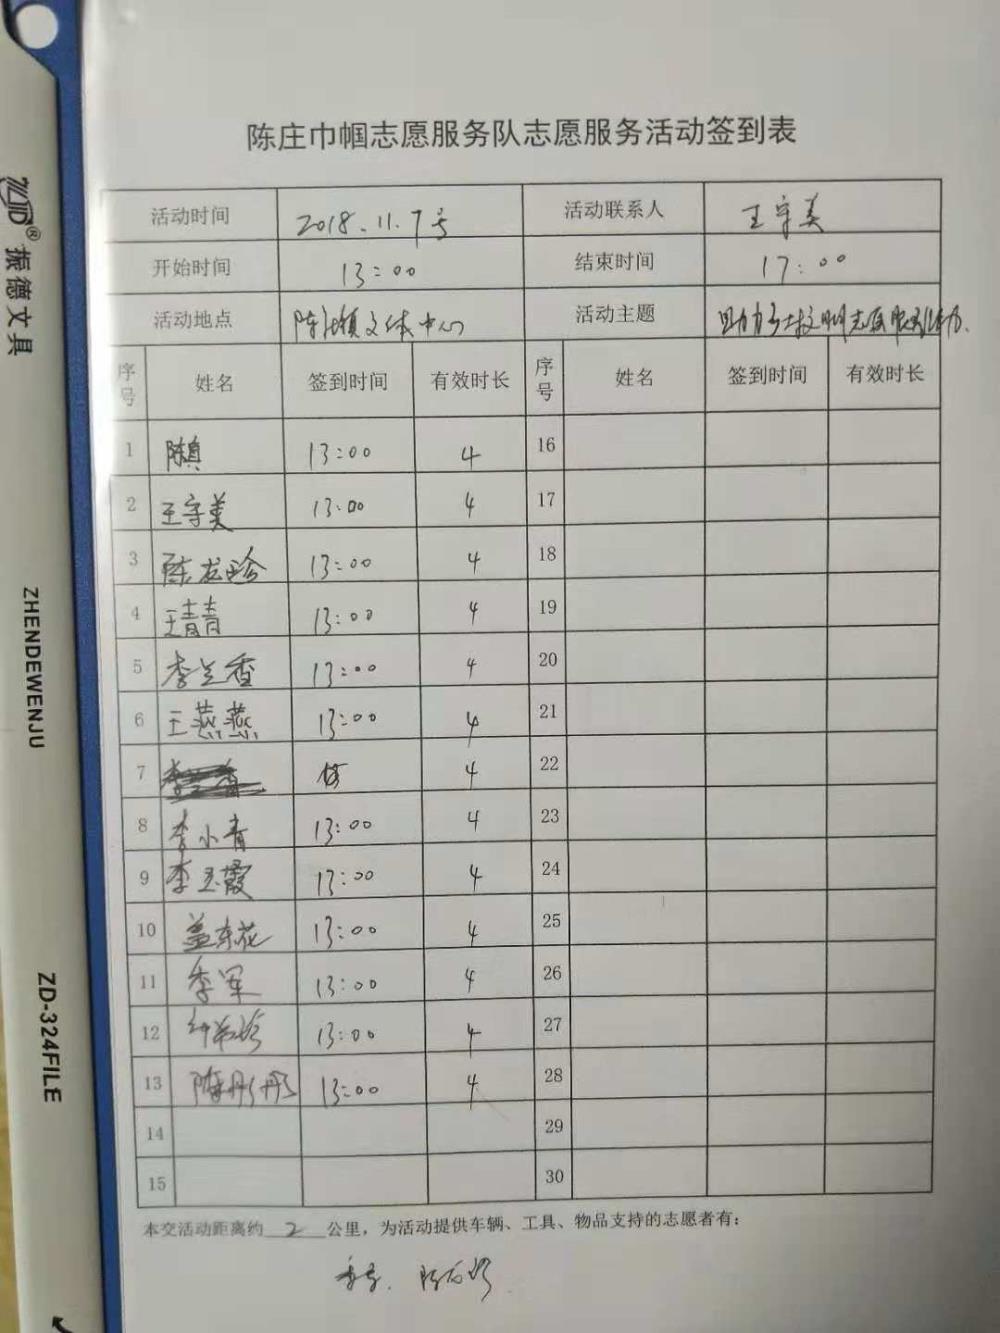 陈庄巾帼志愿服务队志愿服务活动签到表
活动时间 2018.11.7号 活动联系人 王守美
开始时间 13:00 结束时间 17:00
活动地点 陈庄镇文体中心 活动主题
序号 姓名 签到时间 有效时长 序号 姓名 签到时间 有效时长
1 陈真 13:00 4 16
2 王守美 13:00 4 17
3 陈龙珍 13:00 4 18
4 王青青 13:00 4 19
5 李兰香 13:00 4 20
6 王燕燕 13:00 4 21
7 4 22
8 李小青 13:00 4 23
9 李玉霞 13:00 4 24
10 盖东花 13:00 4 25
11 季军 13:00 4 26
12 13:00 4 27
13 陈彤彤 13:00 4 28
14 29
15 30
本交活动距离约 2 公里，为活动提供车辆、工具、物品支持的志愿者有：
ZD® 振德文具
ZHENDEWENJU
ZD-324FILE